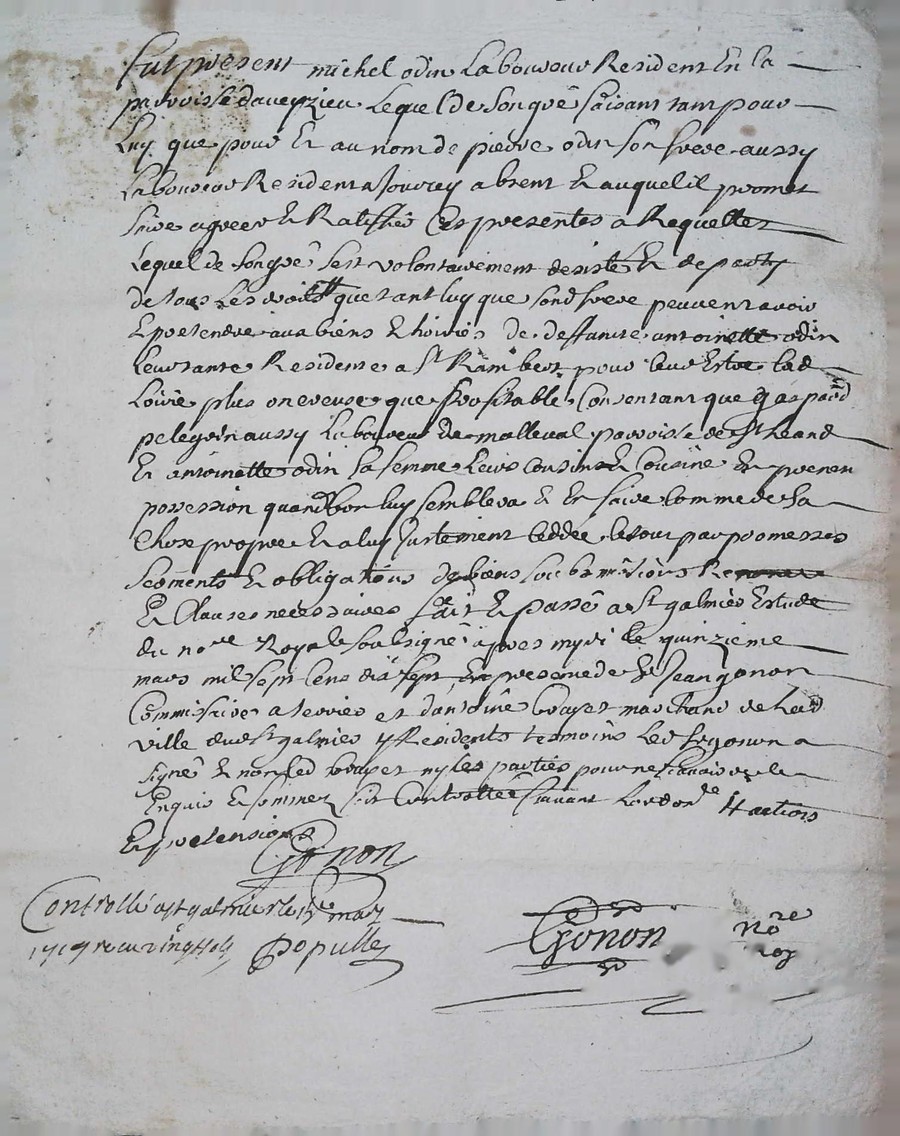 fut present michel odin Laboureur Resident En la
parroisse daveyzieu Lequel de son gré faisant tam pour
Luy que pour Et au nom de pierre odin son frere aussy
Laboureur Resident a Jourcey absent Et auquel il promet
faire agreer Et Ratiffier Ces presentes a Requeste
Lequel de son gré sest volontairement desisté Et departy
de tous Les droits que tant luy que sond frere peuvent avoir
Et pretendre aux biens Et hoiries de deffunte antoinette odin
Leur tante Residente a St Rambert pour leur Estre lad
hoirie plus onereuse que profitable Consentant que gaspard
pelegrin aussy Laboureur de malleval parroisse de St heand
Et antoinette odin sa femme Leurs Cousin Et Cousine En prenen
possession quand bon luy semblera Et En faire Comme de sa
Chose propre Et a luy Justement Ceddée Le tout par promesses
serments Et obligations de biens soubmissions
Et Clauses necessaires fait Et passé a St galmier Estude
du nore Royal soubsigné apres mydi le quinzieme
mars mil sept Cens dix sept En presence de Sr Jean gonon
Commissaire a terrier et dantoine boyer marchand de lad
ville dud St galmier y Residents temoins Led Sr gonon a
signé Et non led boyer ny les parties pour ne scavoir de ce
Enquis Et sommez soit Controllée suivant Lordonce ++ actions
Et pretensions
Gonon
Controllé a st galmier le 15e mars
1717 receu
Populle
Gonon nore
roy